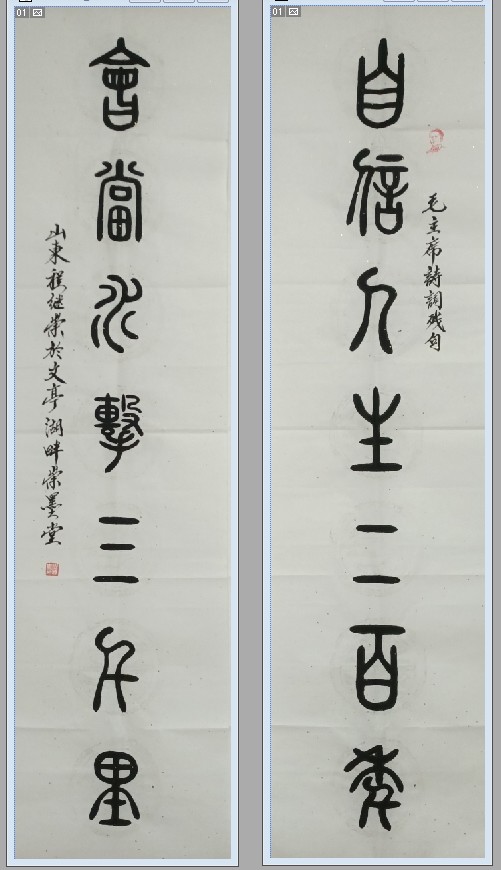 01
自信人生二百年
毛主席詩詞残句
01
會當水擊三千里
山東程继荣於文亭湖畔荣墨堂